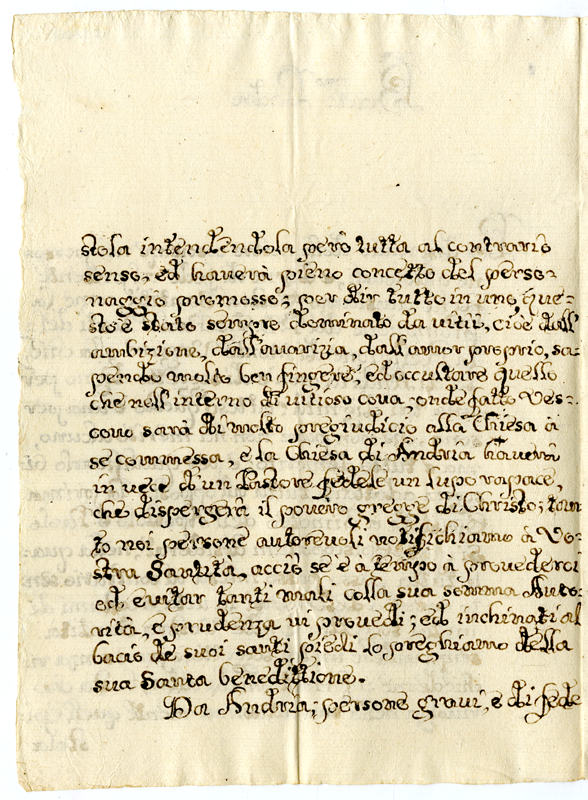 stola intendendola però tutta al contrario
senso, ed haverà pieno concetto del perso-
naggio promosso; per dir tutto in uno, que-
sto è stato sempre dominato da vitii, cioè dall'
ambizione, dall'avarizia, dall'amor proprio, sa-
pendo molto ben fingere, ed occultare quello
che nell'interno di vitioso cova, onde fatto Ves-
covo sarà di molto pregiudicio alla Chiesa à
se commessa, e la Chiesa di Andria haverà
in vece di un Pastore fedele un lupo rapace,
che dispergerà il povero gregge di Christo; tan
to noi persone autorevoli notifichiamo à Vo-
stra Santità, acciò se è a tempo à provederci
ed evitar tanti mali colla sua somma Auto-
rità, e prudenza vi provedi; ed inchinati al
bacio de suoi santi piedi lo preghiamo della
sua Santa benedittione.
Da Andria; persone gravi, e di fede